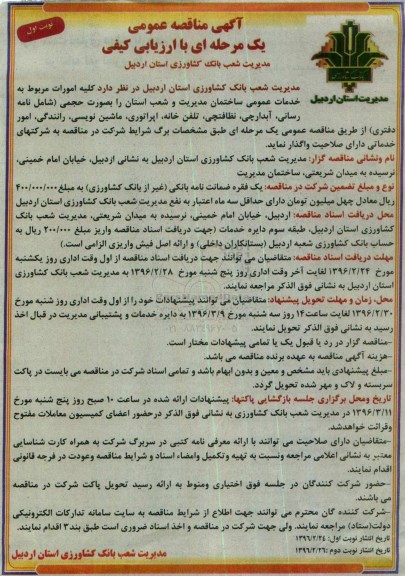 نوبت اول
آگهی مناقصه عمومی
یک مرحله ای با ارزیابی کیفی
مدیریت شعب بانک کشاورزی استان اردبیل
مدیریت استان اردبیل
مدیریت شعب بانک کشاورزی استان اردبیل در نظر دارد کلیه امورات مربوط به
خدمات عمومی ساختمان مدیریت و شعب استان را بصورت حجمی (شامل نامه
رسانی، آبدارچی، نظافتچی، تلفن خانه، اپراتوری، ماشین نویسی، رانندگی، امور
دفتری) از طریق مناقصه عمومی یک مرحله ای طبق مشخصات برگ شرایط شرکت در مناقصه به شرکتهای
خدماتی دارای صلاحیت واگذار نماید.
نام ونشانی مناقصه گزار: مدیریت شعب بانک کشاورزی استان اردبیل به نشانی اردبیل، خیابان امام خمینی،
نرسیده به میدان شریعتی، ساختمان مدیریت
نوع و مبلغ تضمین شرکت در مناقصه: یک فقره ضمانت نامه بانکی (غیر از بانک کشاورزی) به مبلغ ۴۰۰/۰۰۰/۰۰۰
ریال معادل چهل میلیون تومان دارای حداقل سه ماه اعتبار به نفع مدیریت شعب بانک کشاورزی استان اردبیل
محل دریافت اسناد مناقصه: اردبیل، خیابان امام خمینی، نرسیده به میدان شریعتی، مدیریت شعب بانک
کشاورزی استان اردبیل، طبقه سوم دایره خدمات (جهت دریافت اسناد مناقصه واریز مبلغ ۲۰۰/۰۰۰ ریال به
حساب بانک کشاورزی شعبه اردبیل (بستانکاران داخلی) و ارائه اصل فیش واریزی الزامی است.)
مهلت دریافت اسناد مناقصه: متقاضیان می توانند جهت دریافت اسناد مناقصه از اول وقت اداری روز یکشنبه
مورخ ۱۳۹۶/۲/۲۴ لغایت آخر وقت اداری روز پنج شنبه مورخ ۱۳۹۶/۲/۲۸ به مدیریت شعب بانک کشاورزی
استان اردبیل به نشانی فوق الذکر مراجعه نمایند.
محل، زمان و مهلت تحویل پیشنهاد: متقاضیان می توانند پیشنهادات خود را از اول وقت اداری روز شنبه مورخ
۱۳۹۶/۲/۳۰ لغایت ساعت۱۴ روز سه شنبه مورخ ۱۳۹۶/۳/۹ به دایره خدمات و پشتیبانی مدیریت در قبال اخذ
رسید به نشانی فوق الذکر تحویل نمایند.
-مناقصه گزار در رد یا قبول یک یا تمامی پیشنهادات مختار است.
-هزینه آگهی مناقصه به عهده برنده مناقصه می باشد.
-مبلغ پیشنهادی باید مشخص و معین و بدون ابهام باشد و تمامی اسناد شرکت در مناقصه می بایست در پاکت
سربسته و لاک و مهر شده تحویل گردد.
تاریخ ومحل برگزاری جلسه بازگشایی پاکتها: پیشنهادات ارائه شده در ساعت ۱۰ صبح روز پنج شنبه مورخ
۱۳۹۶/۳/۱۱ در مدیریت شعب بانک کشاورزی به نشانی فوق الذکر درحضور اعضای کمیسیون معاملات مفتوح
وقرائت خواهدشد.
-متقاضیان دارای صلاحیت می توانند با ارائه معرفی نامه کتبی در سربرگ شرکت به همراه کارت شناسایی
معتبر به نشانی اعلامی مراجعه ونسبت به تهیه وتکمیل وامضاء اسناد و شرایط مناقصه وعودت در فرجه قانونی
اقدام نمایند.
-حضور شرکت کنندگان در جلسه فوق اختیاری ومنوط به ارائه رسید تحویل پاکت شرکت در مناقصه
می باشند.
-شرکت کننده گان محترم می توانند جهت اطلاع از شرایط مناقصه به سایت سامانه تدارکات الکترونیکی
دولت(ستاد) مراجعه نمایند. ولی جهت شرکت در مناقصه و اخذ اسناد ضروری است طبق بند۳ اقدام نمایند.
تاریخ انتشار نوبت اول: ۱۳۹۶/۲/۲۴
تاریخ انتشار نوبت دوم :۱۳۹۶/۲/۲۶
مدیریت شعب بانک کشاورزی استان اردبیل